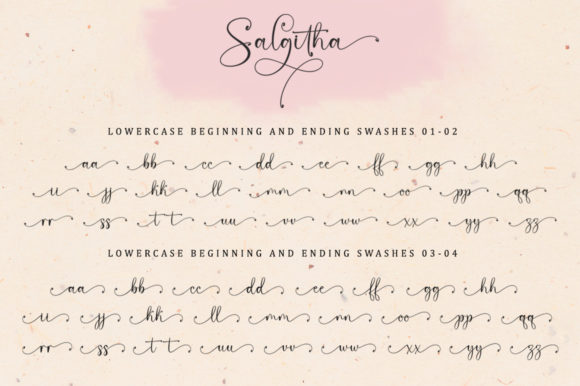 Salgitha
LOWERCASE BEGINNING AND ENDING SWASHES 01-02
aa bb cc dd ee ff gg hh
ii jj kk ll mm nn oo pp qq
rr ss tt uu vv ww xx yy zz
LOWERCASE BEGINNING AND ENDING SWASHES 03-04
aa bb cc dd ee ff gg hh
ii jj kk ll mm nn oo pp qq
rr ss tt uu vv ww xx yy zz